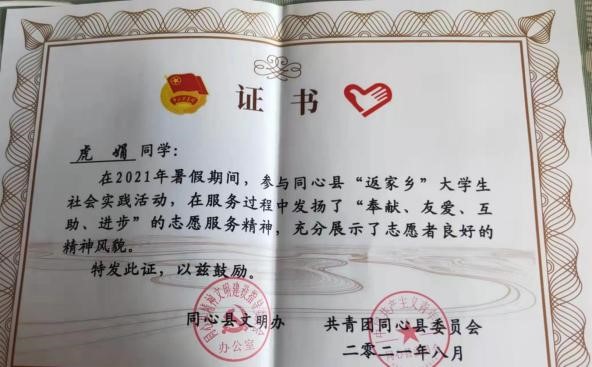 证书
虎娟同学：
在2021年暑假期间，参与同心县“返家乡”大学生
社会实践活动，在服务过程中发扬了“奉献、友爱、互
助、进步”的志愿服务精神，充分展示了志愿者良好的
精神风貌。
特发此证，以兹鼓励。
同心县文明办 共青团同心县委员会
办公室
二〇二一年八月